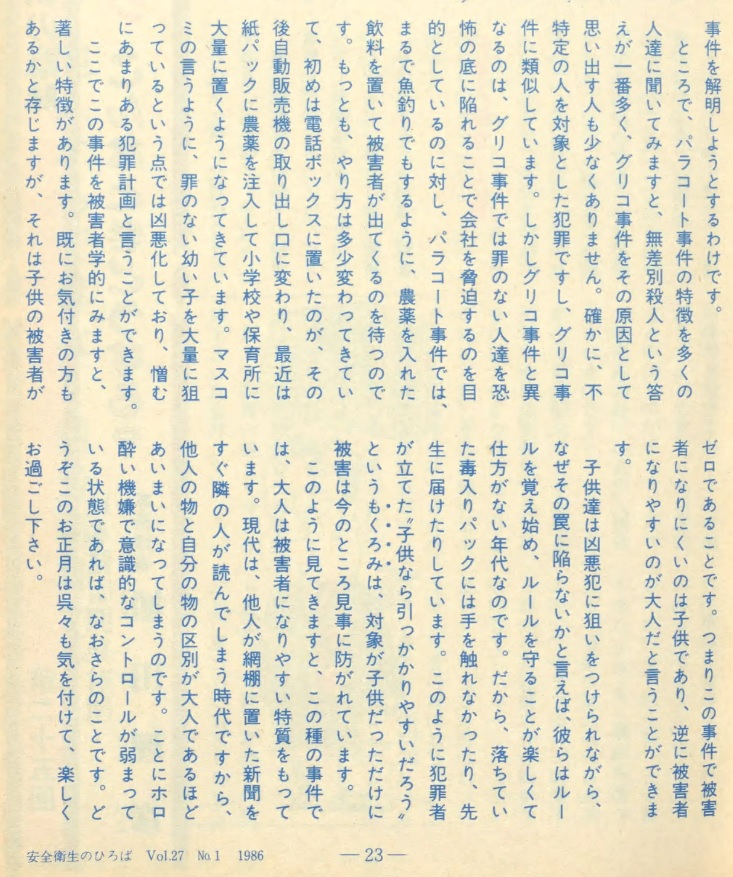 事件を解明しようとするわけです。
　ところで、パラコート事件の特徴を多くの
人達に聞いてみますと、無差別殺人という答
えが一番多く、グリコ事件をその原因として
思い出す人も少なくありません。確かに、不
特定の人を対象とした犯罪ですし、グリコ事
件に類似しています。しかしグリコ事件と異
なるのは、グリコ事件では罪のない人達を恐
怖の底に陥れることで会社を脅迫するのを目
的としているのに対し、パラコート事件では、
まるで魚釣りでもするように、農薬を入れた
飲料を置いて被害者が出てくるのを待つので
す。もっとも、やり方は多少変わってきてい
て、初めは電話ボックスに置いたのが、その
後自動販売機の取り出し口に変わり、最近は
紙パックに農薬を注入して小学校や保育所に
大量に置くようになってきています。マスコ
ミの言うように、罪のない幼い子を大量に狙
っているという点では凶悪化しており、憎む
にあまりある犯罪計画と言うことができます。
　ここでこの事件を被害者学的にみますと、
著しい特徴があります。既にお気付きの方も
あるかと存じますが、それは子供の被害者が
ゼロであることです。つまりこの事件で被害
者になりにくいのは子供であり、逆に被害者
になりやすいのが大人だと言うことができま
す。
　子供達は凶悪犯に狙いをつけられながら、
なぜその罠に陥らないかと言えば、彼らはルー
ルを覚え始め、ルールを守ることが楽しくて
仕方がない年代なのです。だから、落ちてい
た毒入りパックには手を触れなかったり、先
生に届けたりしています。このように犯罪者
が立てた〝子供なら引っかかりやすいだろう〟
というもくろみは、対象が子供だっただけに
被害は今のところ見事に防がれています。
　このように見てきますと、この種の事件で
は、大人は被害者になりやすい特質をもって
います。現代は、他人が網棚に置いた新聞を
すぐ隣の人が読んでしまう時代ですから、
他人の物と自分の物の区別が大人であるほど
あいまいになってしまうのです。ことにホロ
酔い機嫌で意識的なコントロールが弱まって
いる状態であれば、なおさらのことです。ど
うぞこのお正月は呉々も気を付けて、楽しく
お過ごし下さい。
安全衛生のひろば　Vol.27　No.1　1986
— 23 —